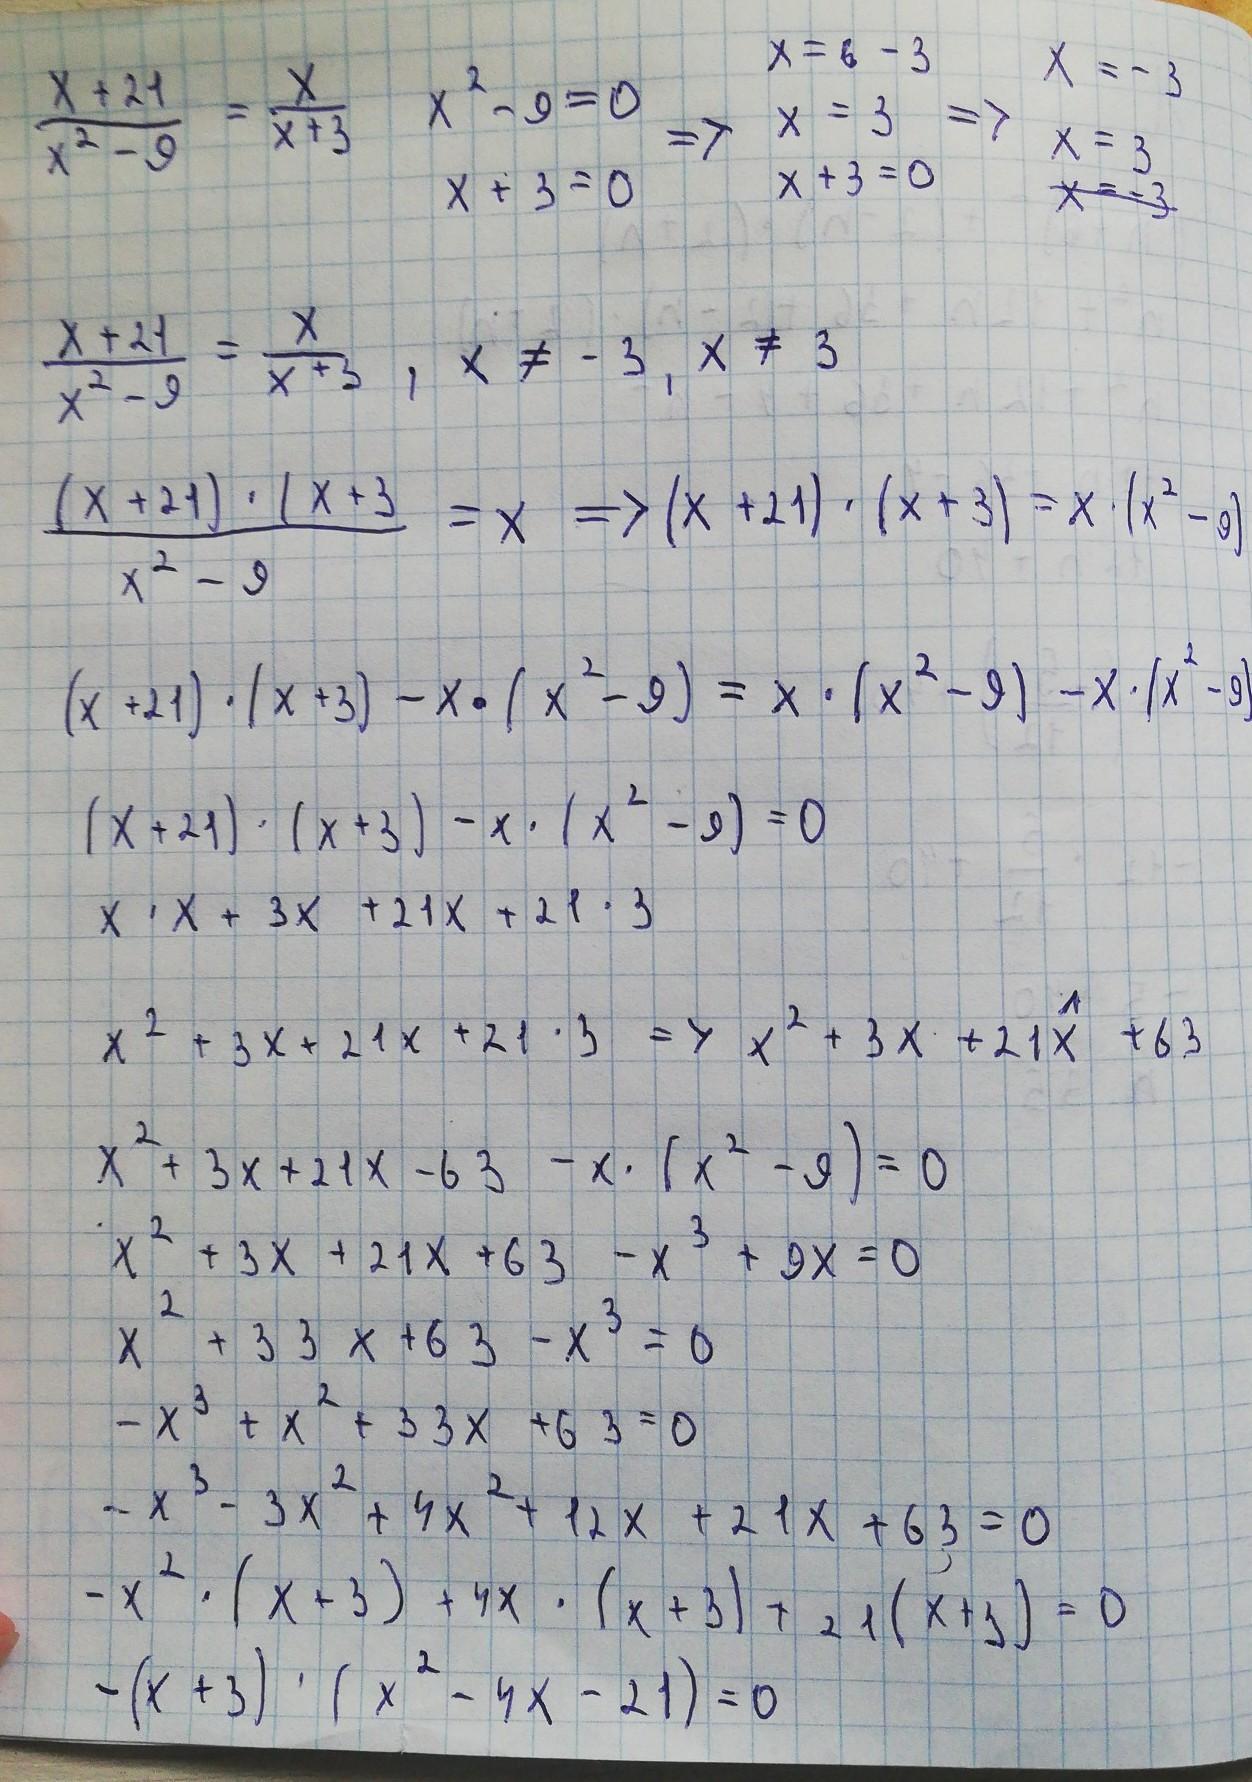 x = 6 - 3 x = -3
(x + 21)/(x² - 9) = x/(x + 3) x² - 9 = 0 => x = 3 => x = 3
x + 3 = 0 x + 3 = 0 x = -3
(x + 21)/(x² - 9) = x/(x + 3), x ≠ -3, x ≠ 3
((x + 21) · (x + 3)/(x² - 9) = x => (x + 21) · (x + 3) = x · (x² - 9)
(x + 21) · (x + 3) - x · (x² - 9) = x · (x² - 9) - x · (x² - 9)
(x + 21) · (x + 3) - x · (x² - 9) = 0
x · x + 3x + 21x + 21 · 3
x² + 3x + 21x + 21 · 3 => x² + 3x + 21x + 63
x² + 3x + 21x - 63 - x · (x² - 9) = 0
x² + 3x + 21x + 63 - x³ + 9x = 0
x² + 33x + 63 - x³ = 0
-x³ + x² + 33x + 63 = 0
-x³ - 3x² + 4x² + 12x + 21x + 63 = 0
-x² · (x + 3) + 4x · (x + 3) + 21(x + 3) = 0
-(x + 3) · (x² - 4x - 21) = 0